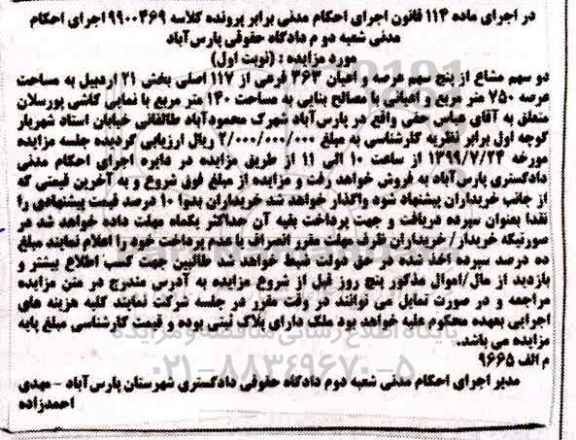 در اجرای ماده ۱۱۴ قانون اجرای احکام مدنی برابر پرونده کلاسه ۹۹۰۰۴۶۹ اجرای احکام
مدنی شعبه دو م دادگاه حقوقی پارس‌آباد
مورد مزایده : (نوبت اول)
دو سهم مشاع از پنج سهم عرصه و اعیان ۳۶۳ فرعی از ۱۱۷ اصلی بخش ۲۱ اردبیل به مساحت
عرصه ۷۵۰ متر مربع و اعیانی با مصالح بنایی به مساحت ۱۴۰ متر مربع با نمایی کاشی پورسلان
متعلق به آقای عباس حقی واقع در پارس‌آباد شهرک محمودآباد طالقانی خیابان استاد شهریار
کوچه اول برابر نظریه کارشناسی به مبلغ ۲/۰۰۰/۰۰۰/۰۰۰ ریال ارزیابی گردیده جلسه مزایده
مورخه ۱۳۹۹/۷/۲۴ از ساعت ۱۰ الی ۱۱ از طریق مزایده در دایره اجرای احکام مدنی
دادگستری پارس‌آباد به فروش خواهد رفت و مزایده از مبلغ فوق شروع و به آخرین قیمتی که
از جانب خریداران پیشنهاد شود واگذار خواهد شد خریداران بدوا ۱۰ درصد قیمت پیشنهادی را
نقدا بعنوان سپرده دریافت و جهت پرداخت بقیه آن حداکثر یکماه مهلت داده خواهد شد در
صورتیکه خریدار/ خریداران ظرف مهلت مقرر انصراف یا عدم پرداخت خود را اعلام نمایند مبلغ
ده درصد سپرده اخذ شده در حق دولت ضبط خواهد شد طالبین جهت کسب اطلاع بیشتر و
بازدید از مال/اموال مذکور پنج روز قبل از شروع مزایده به آدرس مندرج در متن مزایده
مراجعه و در صورت تمایل می توانند در وقت مقرر در جلسه شرکت نمایند کلیه هزینه های
اجرایی بعهده محکوم علیه خواهد بود ملک دارای پلاک ثبتی بوده و قیمت کارشناسی مبلغ پایه
مزایده می باشد.
م الف ۹۶۶۵
۰۲۱-۸۸۳۴۹۶۷۰-۵
مدیر اجرای احکام مدنی شعبه دوم دادگاه حقوقی دادگستری شهرستان پارس‌آباد - مهدی
احمدزاده